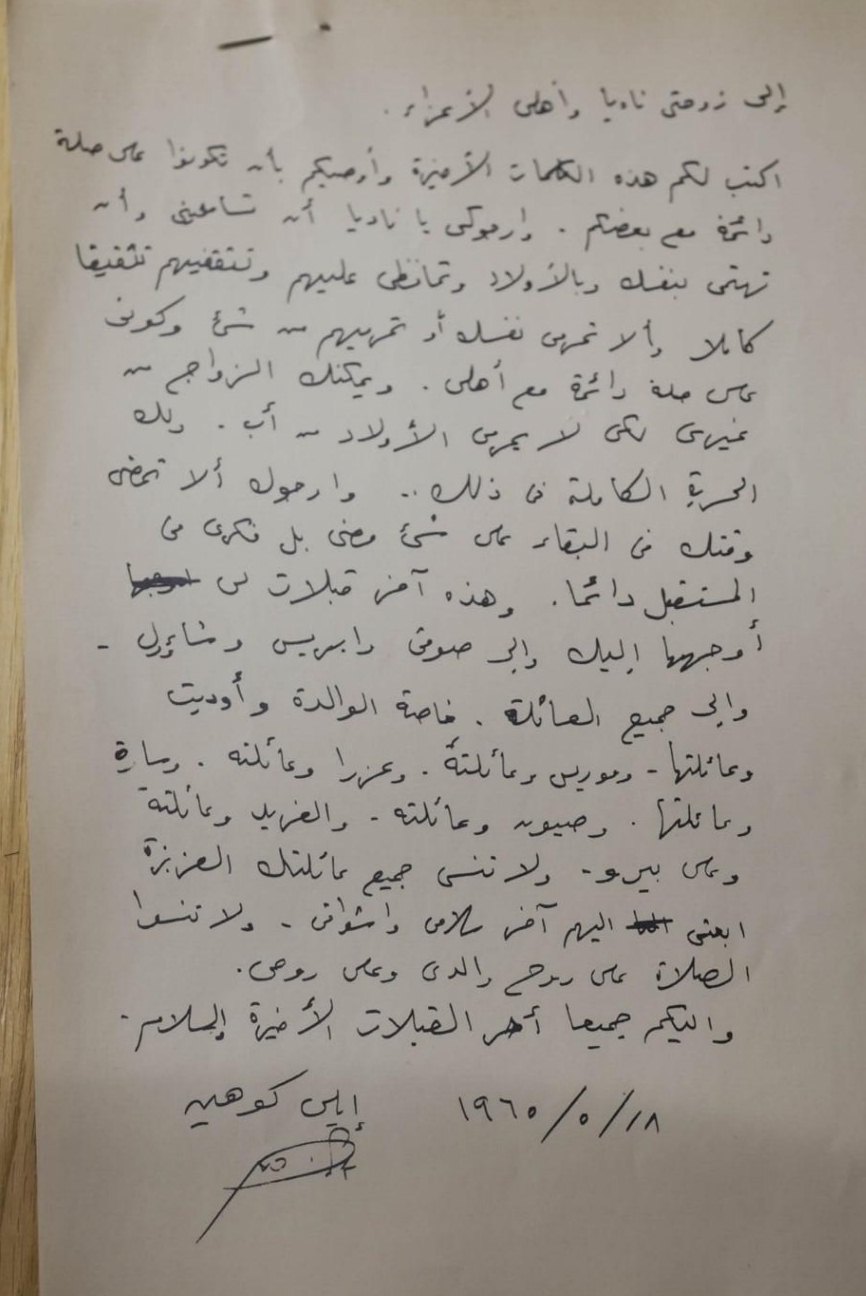 إلى زوجتى ناديا وأهلى الأعزاء.
اكتب لكم هذه الكلمات الأخيرة وأوصيكم بأن تكونوا على صلة
دائمة مع بعضكم. وارجوكى يا ناديا أن تسامحينى وأن
تهتمى بنفسك وبالأولاد وتحافظى عليهم وتثقفيهم تثقيفا
كاملا وألا تحرمى نفسك أو تحرميهم من شئ وكونى
على صلة دائمة مع أهلى. ويمكنك الزواج من
غيرى لكى لا يحرمى الأولاد من أب. ولك
الحرية الكاملة فى ذلك.. وارجوك ألا تمضى
وقتك فى البقاء على شئ مضى بل فكرى فى
المستقبل دائما. وهذه آخر قبلات لى
أوجهها إليك وإلى صوفى وايريس وشاؤول -
وإلى جميع العائلة. خاصة الوالدة وأوديت
وعائلتها - وموريس وعائلتة. وعزرا وعائلته. وسارة
وعائلتها. وصيون وعائلته - والفريد وعائلتة
ولا تنسى جميع عائلتك العزيزة
ابعثى اليهم آخر سلامى واشواقى - ولا تنسوا
الصلاة على روح والدى وعلى روحى.
واليكم جميعا أخر القبلات الأخيرة والسلام -
إيلى كوهين ١٨/٥/١٩٦٥